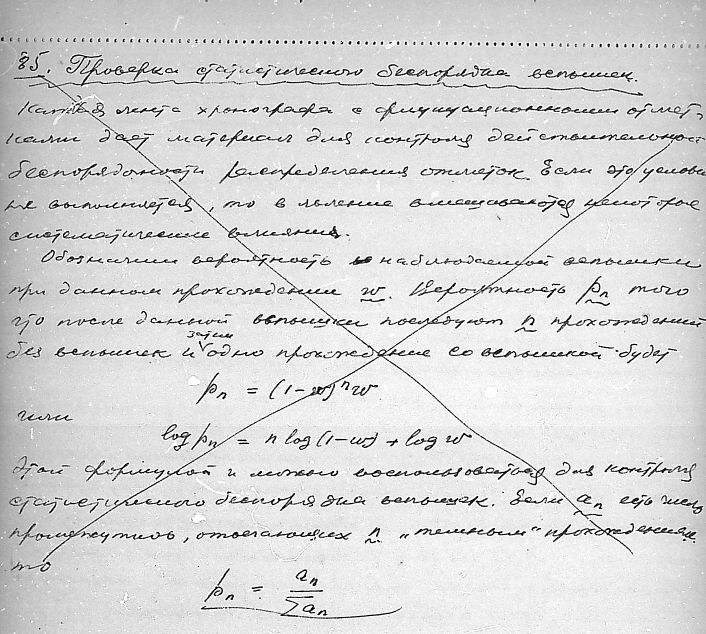 §5. Проверка статистического беспорядка вспышек.
Каждая лента хронографа с флуктуационными отмет-
ками дает материал для контроля действительной
беспорядочности распределения отметок. Если это условие
не выполняется, то в явление вмешиваются некоторые
систематические влияния.
Обозначим вероятность наблюдаемой вспышки
при данном прохождении w. Вероятность pₙ того
что после данной вспышки последуют n прохождений
без вспышек и затем одно прохождение со вспышкой будет
pₙ = (1-w)ⁿw
или
log pₙ = n log (1-w) + log w
Этой формулой и можно воспользоваться для контроля
статистического беспорядка вспышек. Если aₙ есть число
промежутков, отвечающих n „темным“ прохождениям,
то
pₙ = aₙ / Σaₙ